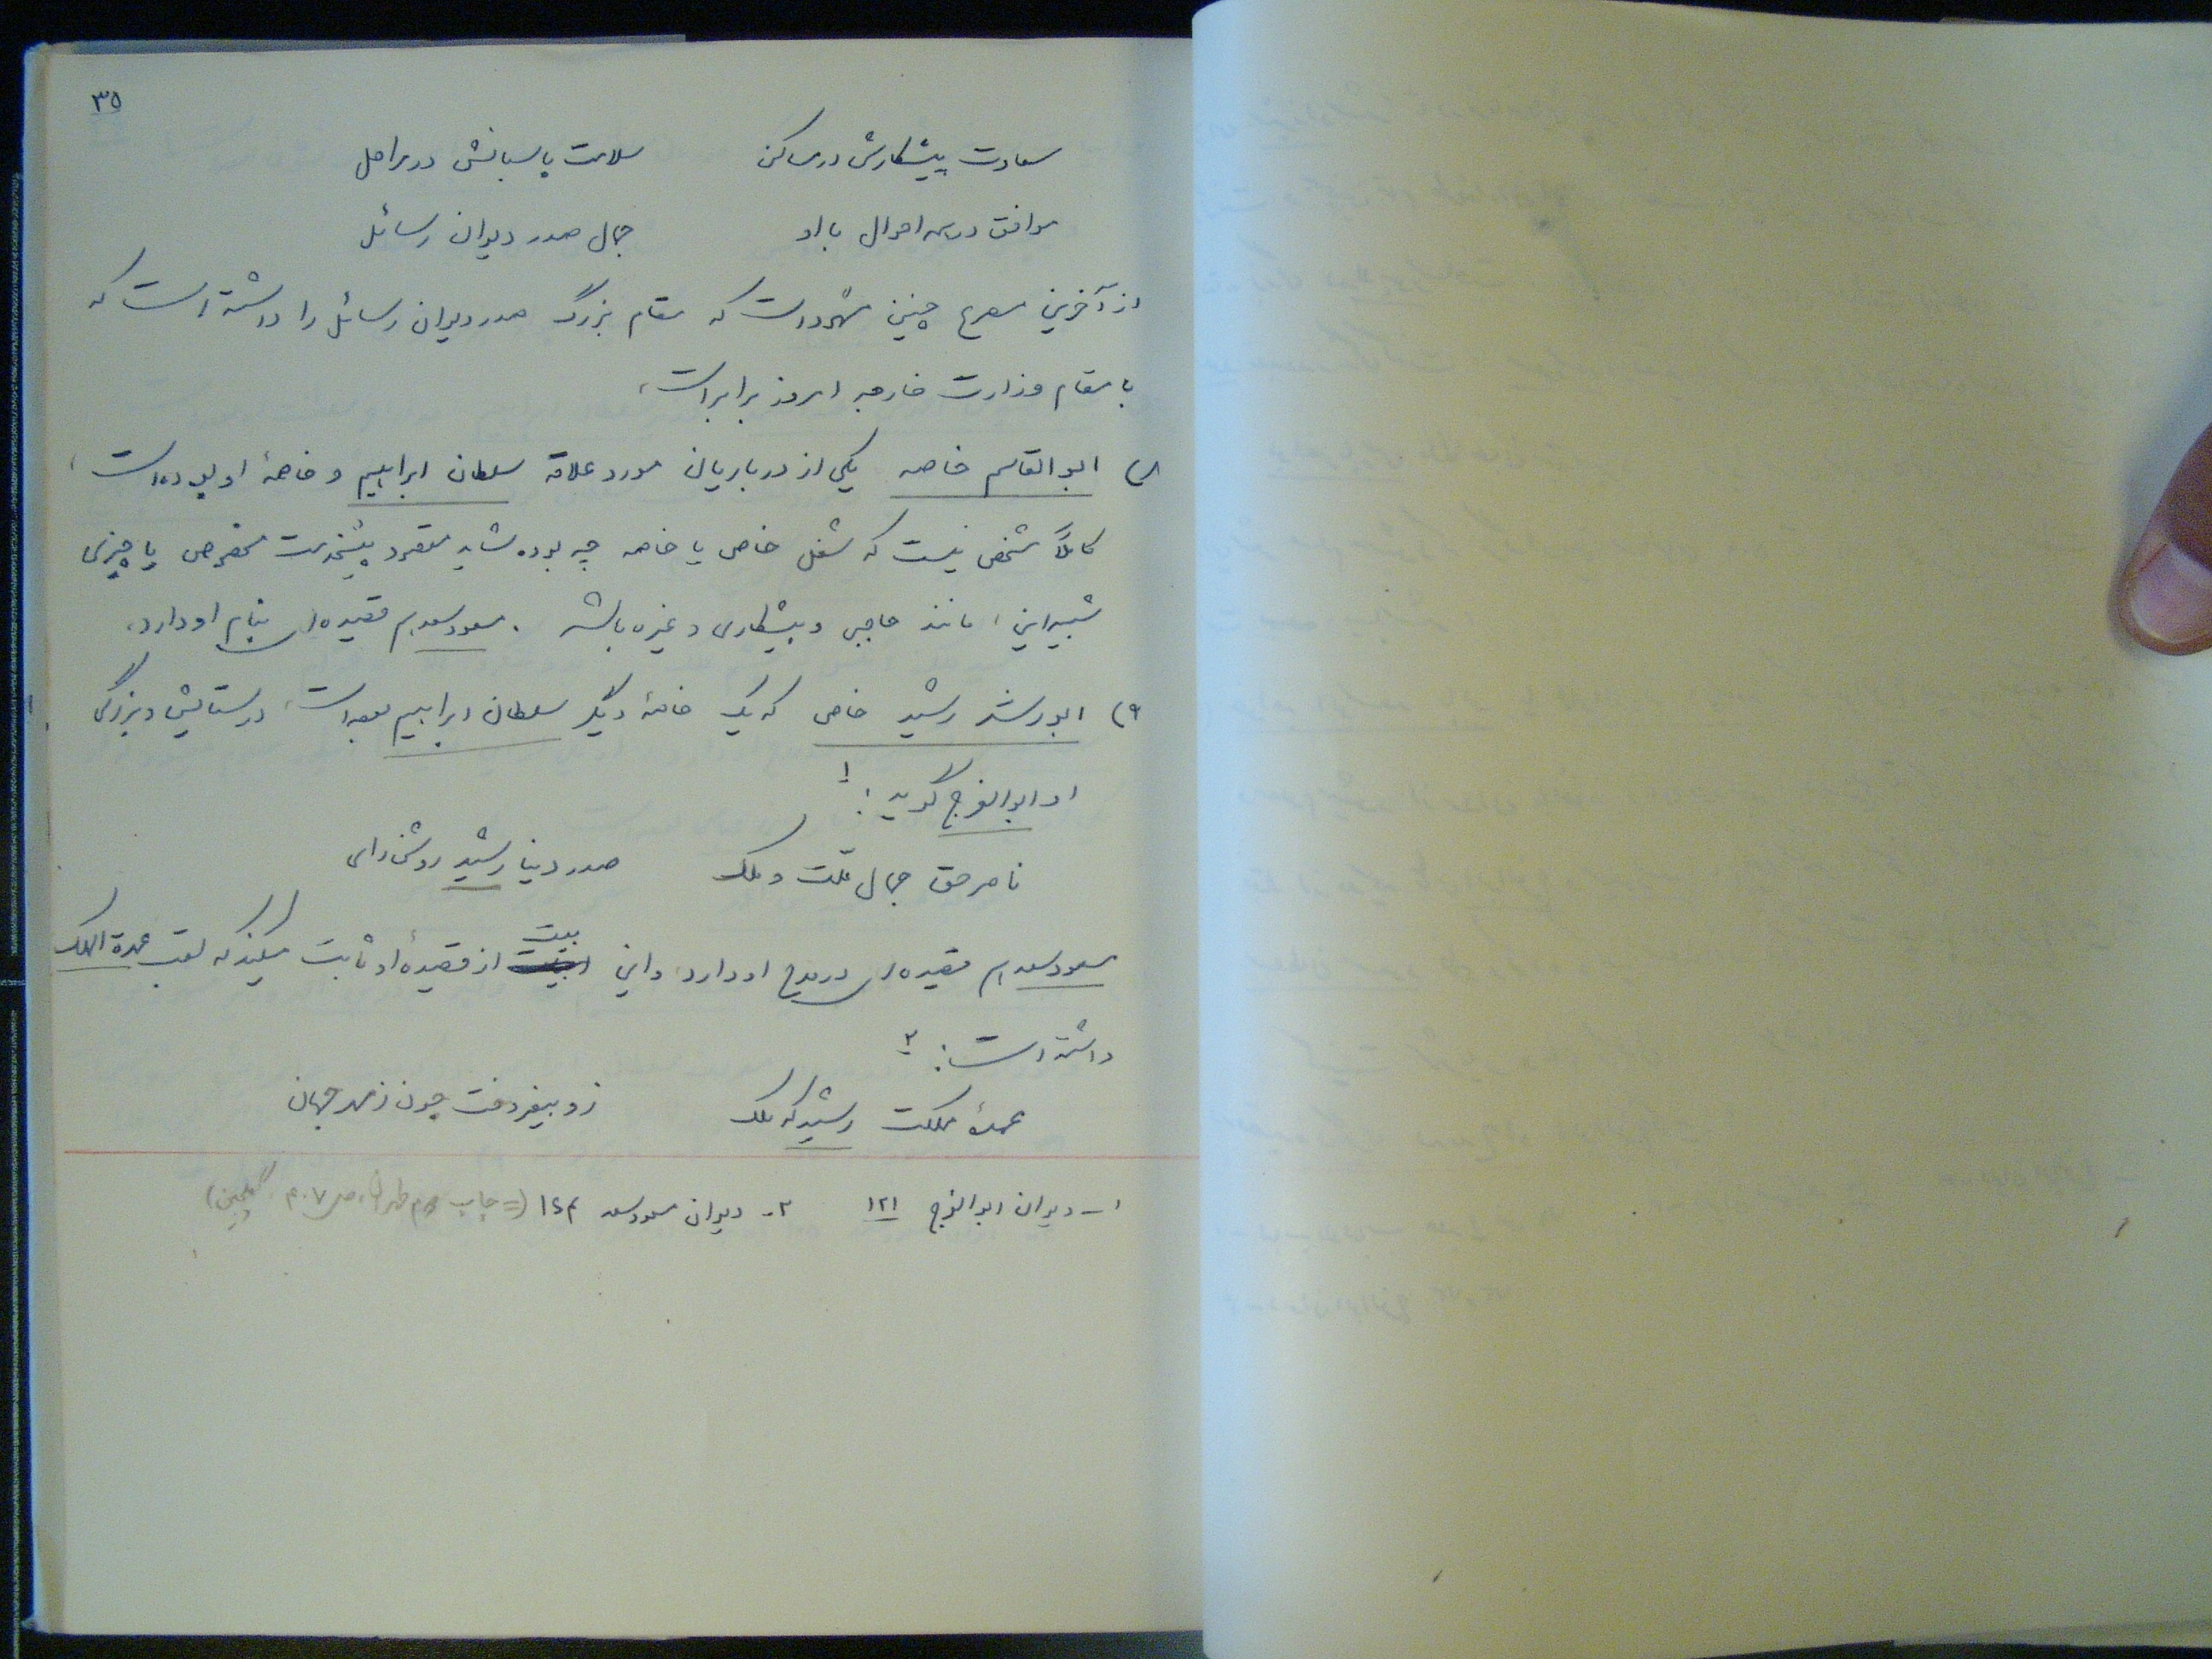 ۳۵
سعادت پیشکارش در مساکن سلامت پاسبانش در مراحل
موافق در همه احوال با او جمال صدر دیوان رسائل
از آخرین مصرع چنین مشهود است که مقام بزرگ صدر دیوان رسائل را داشته است که
با مقام وزارت خارجه امروز برابر است،
۸) ابوالقاسم خاصه یکی از درباریان مورد علاقه سلطان ابراهیم و خاصهٔ او بوده است،
کاملاً مشخص نیست که شغل خاص یا خاصه چه بوده شاید مقصود پیشخدمت مخصوص یا چیزی
شبیه این، مانند حاجبی و پیشکاری و غیره باشد. مسعود سعد هم قصیده‌ای بنام او دارد،
۹) ابورشد رشید خاص که یک خاصهٔ دیگر سلطان ابراهیم بوده است، در ستایش و بزرگی
او ابوالفرج گوید:۱
ناصر حق جمال ملت و ملک صدر دنیا رشید روشن رای
مسعود سعد هم قصیده‌ای در مدح او دارد و این بیت از قصیدهٔ او ثابت میکند که لقب عمدة الملک
داشته است:۲
عمدهٔ مملکت رشید که ملک زو بیفروخت چون ز مهر جهان
۱- دیوان ابوالفرج ۱۲۱ ۲- دیوان مسعود سعد ۱۶۴ (= چاپ طهران، ص ۴۰۷ گلچین)